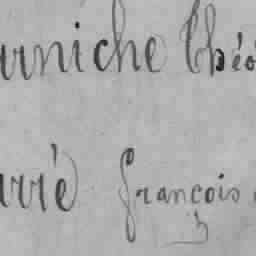 urniche Théo
arré françois